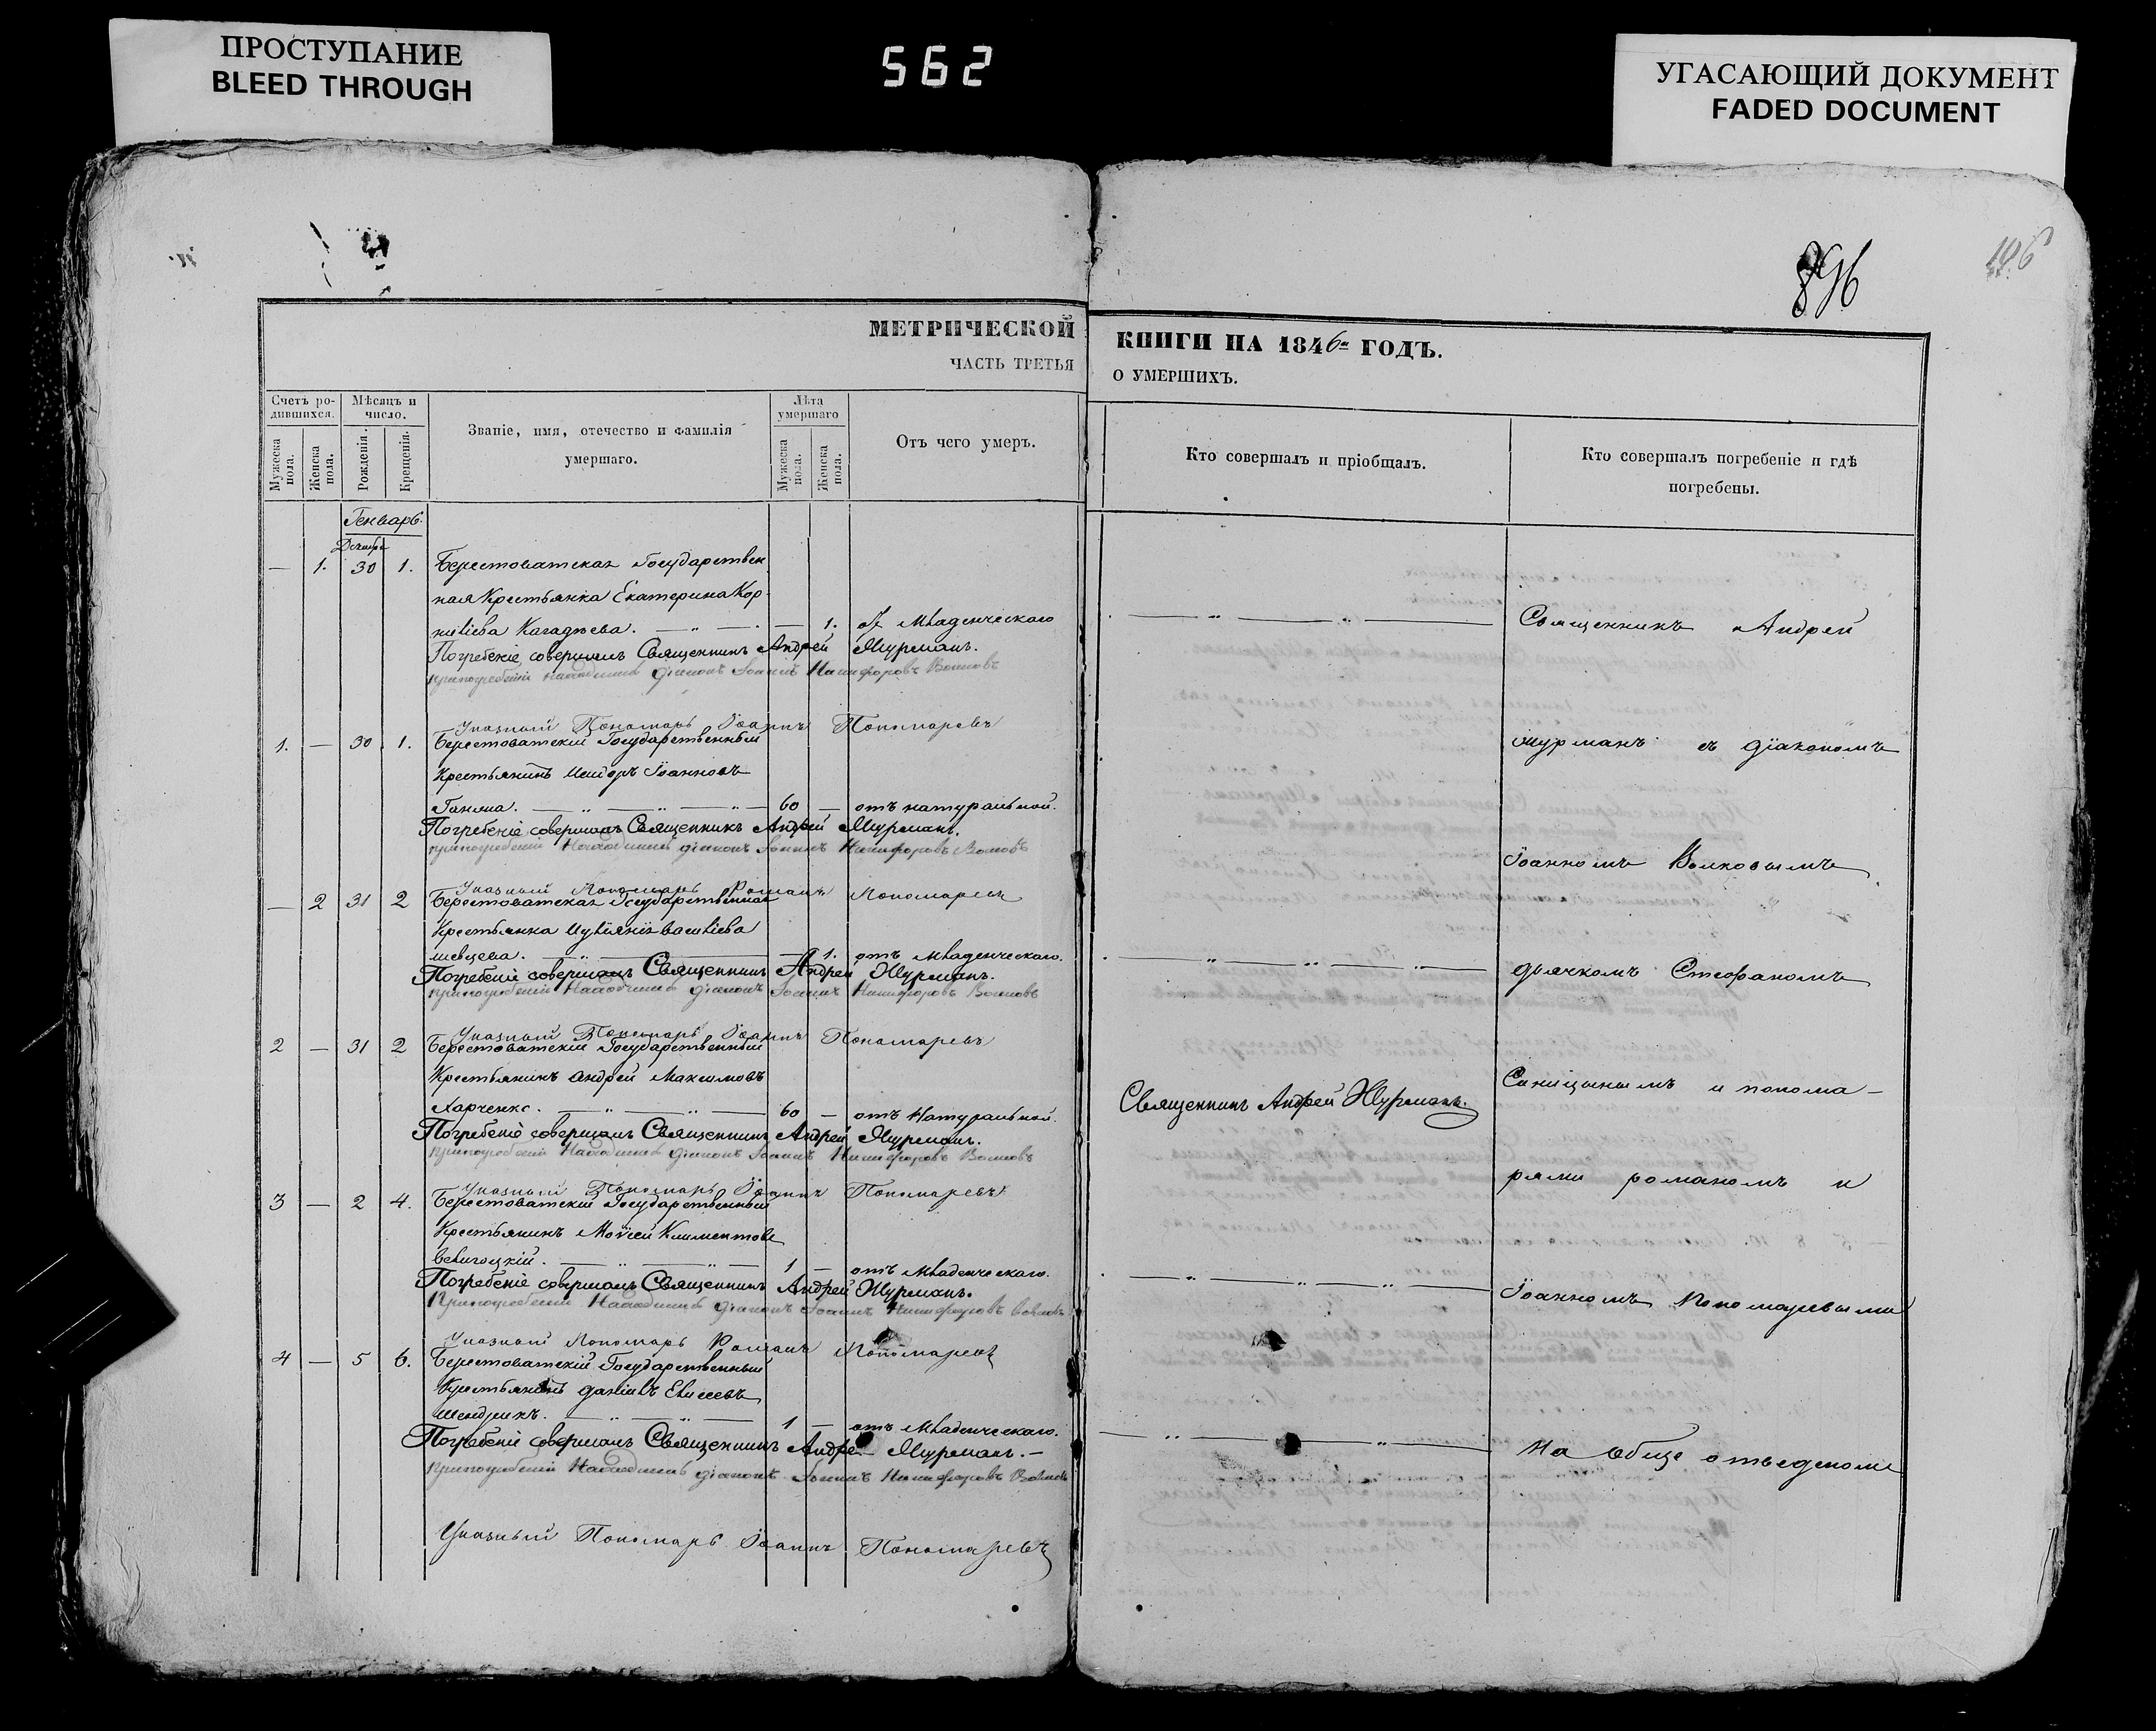 ПРОСТУПАНИЕ
BLEED THROUGH
562
УГАСАЮЩИЙ ДОКУМЕНТ
FADED DOCUMENT
896
МЕТРИЧЕСКОЙ
ЧАСТЬ ТРЕТЬЯ
КНИГИ НА 1846 ГОДЪ.
О УМЕРШИХЪ.
Счетъ ро-
дившихся.
Мужеска пола.
Женска пола.
Мѣсяцъ и
число.
Рожденія.
Крещенія.
Званіе, имя, отечество и фамилія
умершаго.
Лѣта
умершаго
Мужеска пола.
Женска пола.
Отъ чего умеръ.
Кто совершалъ и пріобщалъ.
Кто совершалъ погребеніе и гдѣ
погребены.
Генварь.
Декабря
— 1. 30 1. Берестоватская Государствен
ная Крестьянка Екатерина Кор
ниліева — 1. Младенческаго
Погребеніе совершалъ Священникъ Андрей Журманъ.
діаконъ Іоаннъ Никифоровъ Волковъ
Указный Пономарь Іоаннъ Пономаревъ
1. — 30 1. Берестоватскій Государственный
Крестьянинъ Исидоръ Іоанновъ
60 — отъ натуральной.
Погребеніе совершалъ Священникъ Андрей Журманъ.
діаконъ Іоаннъ Никифоровъ Волковъ
Указный Пономарь Романъ Пономаревъ
— 2 31 2 Берестоватская Государственная
Крестьянка Иуліянія Василіева
шевцева. — 1. отъ младенческаго.
Погребеніе совершалъ Священникъ Андрей Журманъ.
діаконъ Іоаннъ Никифоровъ Волковъ
Указный Пономарь Іоаннъ Пономаревъ
2 — 31 2 Берестоватскій Государственный
Крестьянинъ Андрей Максимовъ
Харченко. 60 — отъ Натуральной.
Погребеніе совершалъ Священникъ Андрей Журманъ.
діаконъ Іоаннъ Никифоровъ Волковъ
Указный Пономарь Іоаннъ Пономаревъ
3 — 2 4. Берестоватскій Государственный
Крестьянинъ Моѵсей Климентовъ
1 — отъ младенческаго.
Погребеніе совершалъ Священникъ Андрей Журманъ.
діаконъ Іоаннъ Никифоровъ Волковъ
Указный Пономарь Романъ Пономаревъ
4 — 5 6. Берестоватскій Государственный
Крестьянинъ Даніилъ Елисеевъ
Шендрикъ. 1 — отъ младенческаго.
Погребеніе совершалъ Священникъ Андрей Журманъ. —
діаконъ Іоаннъ Никифоровъ Волковъ
Указный Пономарь Іоаннъ Пономаревъ
Священникъ Андрей Журманъ.
Священникъ Андрей
Журманъ съ діакономъ
Іоанномъ Волковымъ
дьячкомъ Стефаномъ
Синицынымъ и понома-
рями романомъ и
Іоанномъ Пономаревыми
на обще отведеномъ